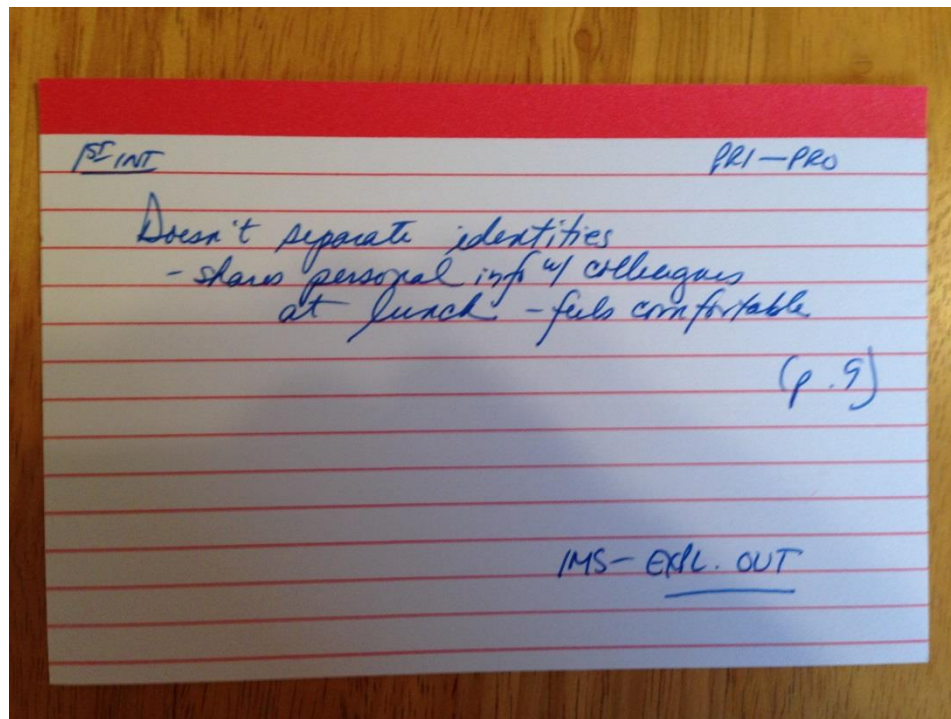 1ST INT PRI—PRO
Doesn't separate identities
- shares personal info w/ colleagues
at lunch - feels comfortable
(p. 9)
IMS- EXPL. OUT